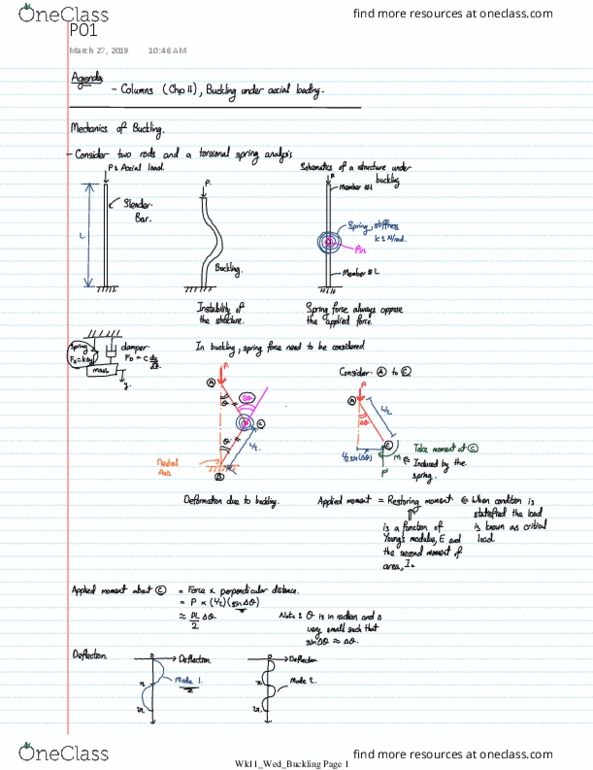 OneClass
find more resources at oneclass.com
P01
March 27, 2019 10:46 AM
Agenda
- Columns (Chp 11), Buckling under axial loading.
Mechanics of Buckling.
- Consider two rods and a torsional spring analysis
P = Axial load.
Schematics of a structure under buckling
P
P
Member #1
Slender Bar.
L
Spring, stiffness
k = N/rad.
Pin
Buckling.
Member #2
Instability of the structure.
Spring force always oppose the applied force.
Spring
damper
mass
y.
In buckling, spring force need to be considered
Consider A to C
P.
P
A
A
2θ
θ
Δθ
L/2
C
C
θ
L/2
L/2 sin(Δθ)
Take moment at C
M
Induced by the spring.
P
Neutral Axis
B
Deformation due to buckling.
Applied moment = Restoring moment
When condition is statisfied the load is known as critical load.
is a function of Young's modulus, E and the second moment of area, I.
Applied moment about C = Force x perpendicular distance.
= P x (L/2)(sin Δθ)
≈ PL/2 Δθ
Note : θ is in radian and is very small such that sin Δθ ≈ Δθ.
Deflection.
Deflection
Deflection
π
Mode 1.
2π
π
Mode 2.
2π
OneClass
find more resources at oneclass.com
Wk11_Wed_Buckling Page 1